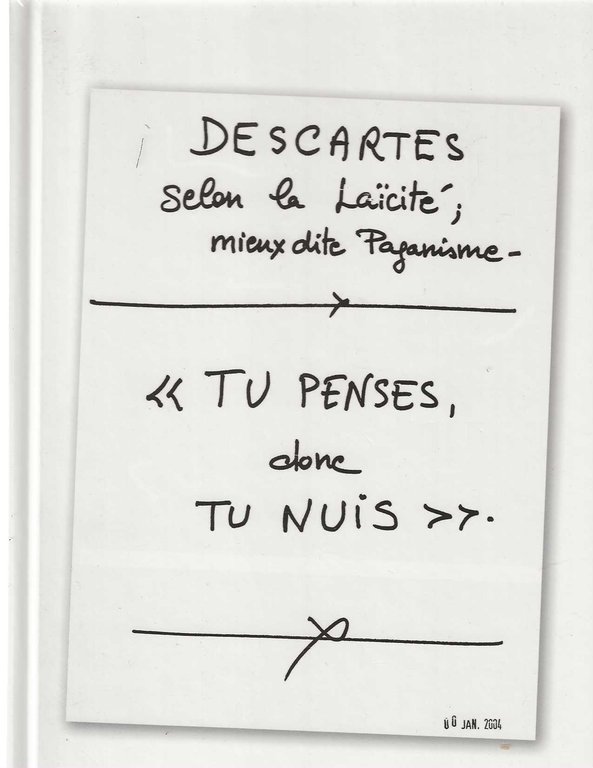 DESCARTES
selon la Laïcité ;
mieux dite Paganisme -
« TU PENSES,
donc
TU NUIS ».
06 JAN. 2004